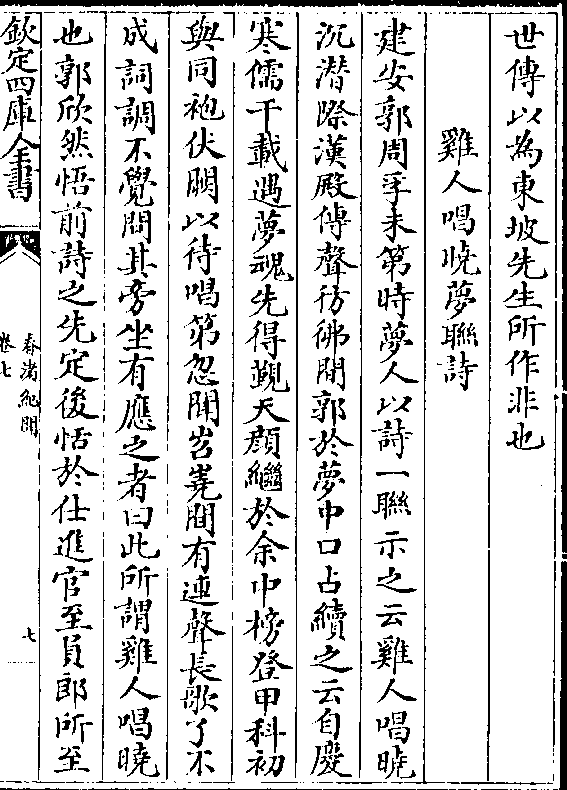 世傳以為東坡先生所作非也
雞人唱曉夢聯詩
建安郭周孚未第時夢人以詩一聯示之云雞人唱曉
沉潜際漢殿傳聲彷彿間郭於夢中口占續之云自慶
寒儒千載遇夢魂先得覲天顔繼於余中榜登甲科初
與同袍伏闕以待唱第忽聞岧嶤間有連聲長歌了不
成詞調不覺問其旁坐有應之者曰此所謂雞人唱曉
也郭欣然悟前詩之先定後恬於仕進官至員郎所至
欽定四庫全書
春渚紀聞
卷七
七